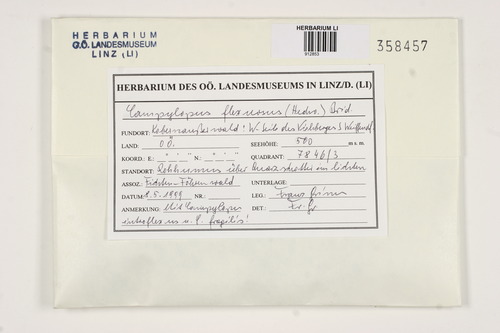 HERBARIUM
O.Ö. LANDESMUSEUM
LINZ (LI)
HERBARIUM LI
358457
HERBARIUM DES OÖ. LANDESMUSEUMS IN LINZ/D. (LI)
Campylopus flexuosus (Hedw.) Brid.
FUNDORT: Kobernaußerwald: W-Seite des
LAND: OÖ. SEEHÖHE: 500 m s. m.
KOORD.: E.: ° ' " N.: ° ' " QUADRANT: 7846/3
STANDORT: Rohhumus über Quarzschotter in lichten
ASSOZ.: Fichten-Föhrenwald UNTERLAGE:
DATUM: 1.5.1999 NR.: LEG.: Franz Grims
ANMERKUNG: Mit Campylopus DET.: Fr. Gr.
introflexus u. C. fragilis!